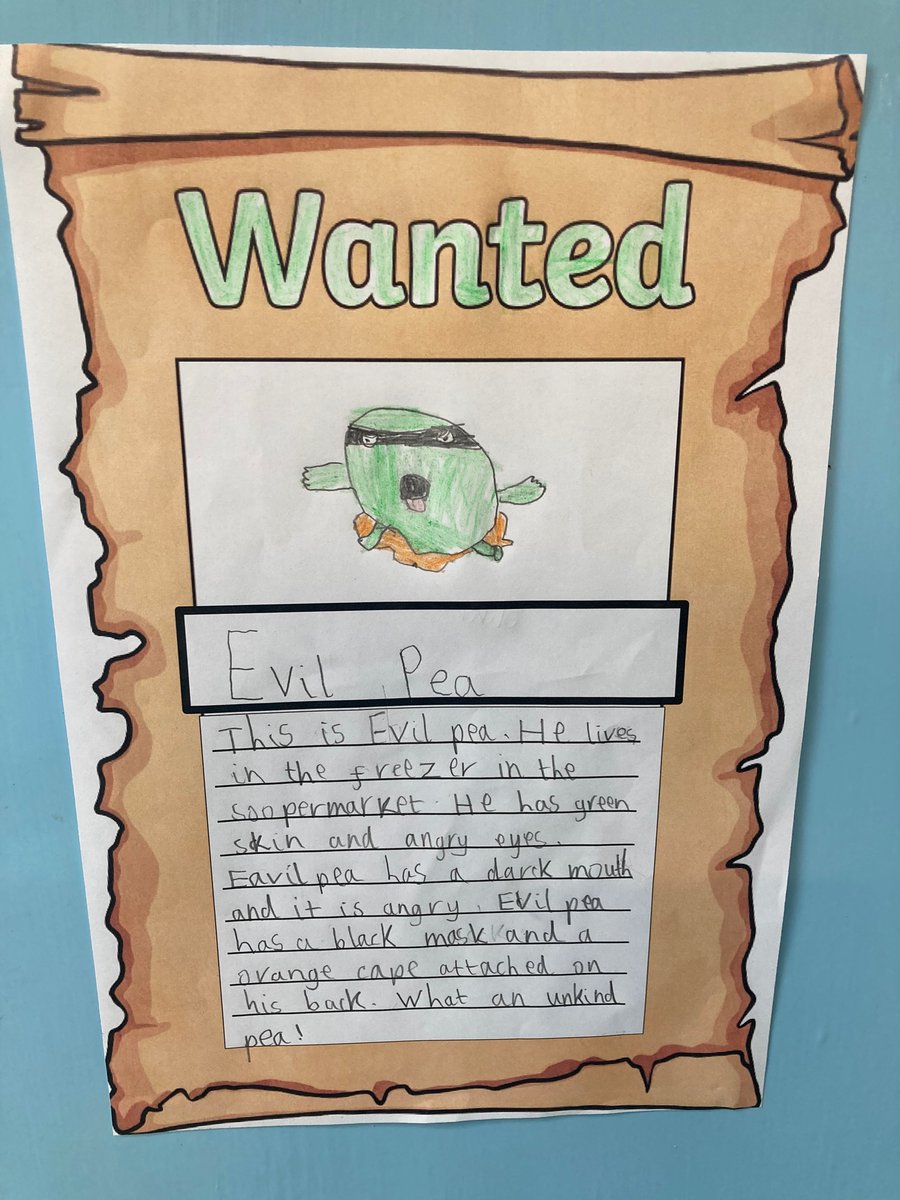 Wanted
Evil Pea
This is Evil pea. He lives
in the freezer in the
soopermarket. He has green
skin and angry eyes.
Eavil pea has a darck mouth
and it is angry. Evil pea
has a black mask and a
orange cape attached on
his back. What an unkind
pea!